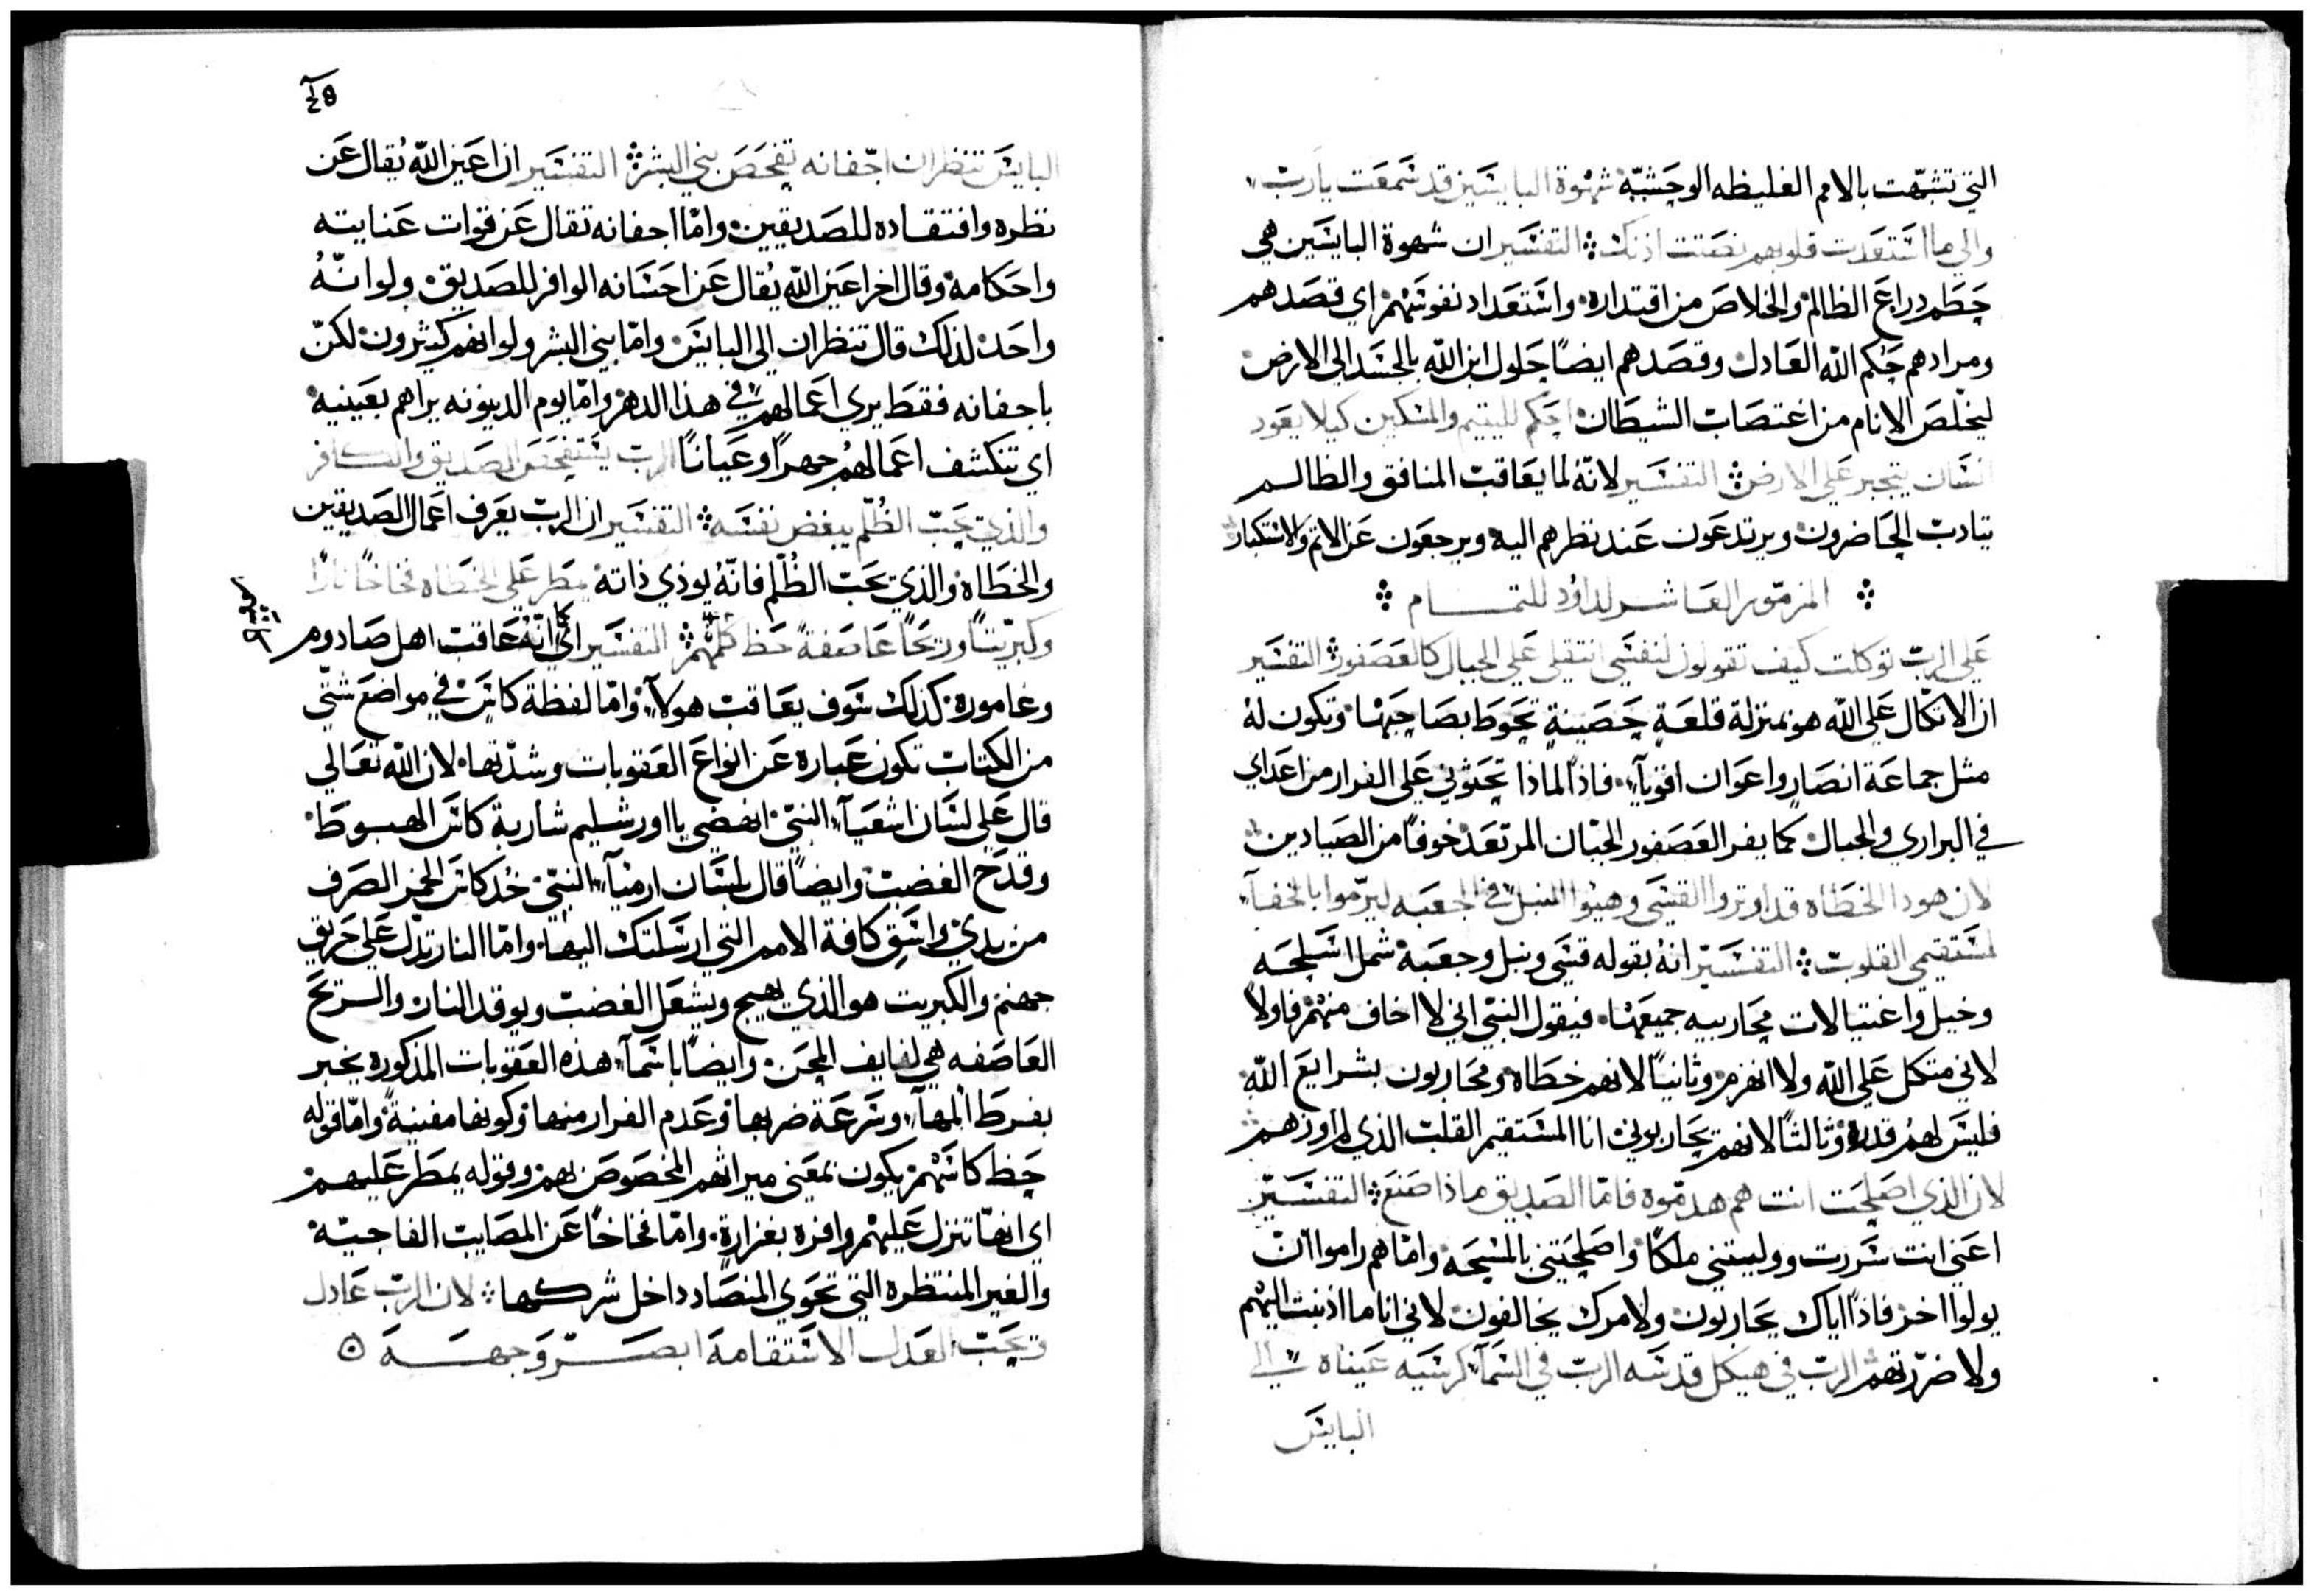 التي تشبّهت بالامم الغليظه الوحشيّة شهوة البايسين قد سمعت يارب
والي ما استعدت قلوبهم نصتت اذنك التفسير ان شهوة البايسين هي
حطم دراع الظالم والخلاص من اقتداره واستعداد نفوسهم اي قصدهم
ومرادهم حكم الله العادل وقصدهم ايضًا حلول ابن الله بالجسد الي الارض
ليخلّص الانام من اغتصاب الشيطان احكم لليتيم والمسكين كيلا يعود
انسان يتجبر علي الارض التفسير لانهُ لما يعاقب المنافق والظالم
يتادب الحاضرون ويرتدعون عند نظرهم اليه ويرجعون عن الاثم والاستكبار
المزمور العاشر لداوُد للتمام
علي الربّ توكلت كيف تقولون لنفسي انتقلي علي الجبال كالعصفور التفسير
ان الاتكال علي الله هو بمنزلة قلعةٍ حصينةٍ تحوط بصاحبها وتكون لهُ
مثل جماعة انصارٍ واعوان اقويآء فاذًا لماذا تحثوني علي الفرار من اعداي
في البراري والجبال كما يفر العصفور الجبان المرتعد خوفًا من الصيادين
لان هودا الخطاه قد اوتروا القسي وهيوا النبل في الجعبه ليرموا بالخفآء
لمستقيمي القلوب التفسير انهُ بقوله قسي ونبل وجعبة شمل اسلحه
وحيل واغتيالات محاربيه جميعها فيقول النبي اني لا اخاف منهم فاولاً
لاني متكل علي الله ولا انهزم وثانيًا لانهم خطاه ومحاربون بشرايع الله
فليس لهم قدرة وثالثًا لانهم يحاربوني انا المستقيم القلب الذي لم اوذهم
لان الذي اصلحت انت هم هدموه فامّا الصديق ماذا صنع التفسير
اعني انت سررت ووليتني ملكًا واصلحتني بالمسحه وامّا هم راموا ان
يولوا اخر فاذًا اياك يحاربون ولامرك يخالفون لاني انا ما اذنبت اليهم
ولا ضرّرتهم الربّ في هيكل قدسه الربّ في السمآء كرسيه عيناه الي
البايس
البايس تنظران اجفانه تفحص بني البشر التفسير ان اعين الله يُقال عن
نظره وافتقاده للصديقين وامّا اجفانه تقال عن قوات عنايته
واحكامه وقال اخر اعين الله يُقال عن احسانه الوافر للصديق ولو انّهُ
واحد لذلك قال تنظران الي البايس وامّا بني البشر ولو انهم كثيرون لكنّ
باجفانه فقط يري اعمالهم في هذا الدهر وامّا يوم الدينونه يراهم بعينيه
اي تنكشف اعمالهم جهرًا وعيانًا الربّ يستفحص الصديق والكافر
والذي يحبّ الظُلم يبغض نفسه التفسير ان الربّ يعرف اعمال الصديقين
والخطاه والذي يحب الظُلم فانّهُ يوذي ذاته يمطر علي الخطاه فخاخًا نارًا
وكبريتًا وريحًا عاصفةً حظ كاسهم التفسير اي كما انّهُ عاقب اهل صادوم
وغاموره كذلك سوف يعاقب هولآء وامّا لفظة كاس في مواضع شتّي
من الكتاب تكون عباره عن انواع العقوبات وشدّتها لان الله تعالي
قال علي لسان اشعيآء النبيّ انهضي يا اورشليم شاربة كاس الهبوط
وقدح الغضب وايضًا قال بلسان ارميآء النبيّ خُد كاس الخمر الصرف
من يدي واسقِ كافة الامم التي ارسلتك اليها وامّا النار تدل علي حريق
جهنم والكبريت هو الذي يهيج ويشعل الغضب ويوقد النار والريح
العاصفه هي لفايف المحن وايضًا باسمآء هذه العقوبات المذكوره يخبر
بفرط المهآء وسرعة ضربها وعدم الفرار منها وكونها مفنيةً وامّا قوله
حظ كاسهم يكون بمعني ميراثهم المخصوص بهم وقوله يمطر عليهم
اي انها تنزل عليهم وافره بغزارة وامّا فخاخًا عن المصايب الفاجيّة
والغير المنتظره التي تحوي المنصاد داخل شركها لان الربّ عادل
ويحبّ العدل الاستقامة ابصر وجهه